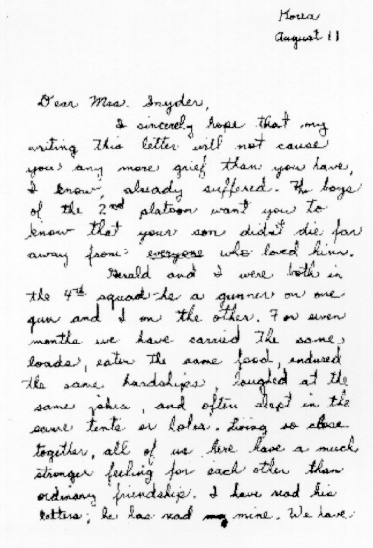 Korea
August 11
Dear Mrs. Snyder,
I sincerely hope that my
writing this letter will not cause
you any more grief than you have,
I know, already suffered. The boys
of the 2nd platoon want you to
know that your son didn't die far
away from everyone who loved him.
Gerald and I were both in
the 4th squad - he a gunner on one
gun and I on the other. For seven
months we have carried the same
loads, eaten the same food, endured
the same hardships, laughed at the
same jokes, and often slept in the
same tents or holes. Living so close
together, all of us here have a much
stronger feeling for each other than
ordinary friendship. I have read his
letters; he has read mine. We have